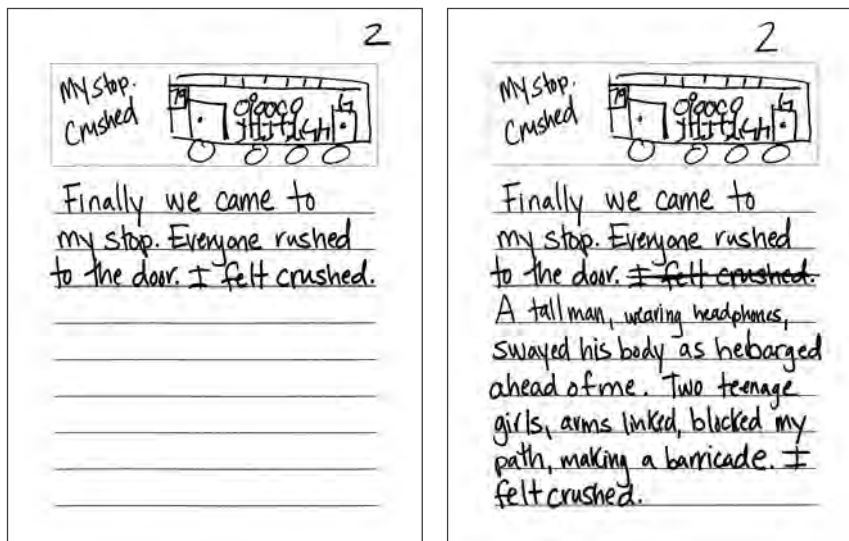 2
My stop.
Crushed
79
Finally we came to
my stop. Everyone rushed
to the door. I felt crushed.
2
My stop.
Crushed
79
Finally we came to
my stop. Everyone rushed
to the door. I felt crushed.
A tall man, wearing headphones,
swayed his body as he barged
ahead of me. Two teenage
girls, arms linked, blocked my
path, making a barricade. I
felt crushed.